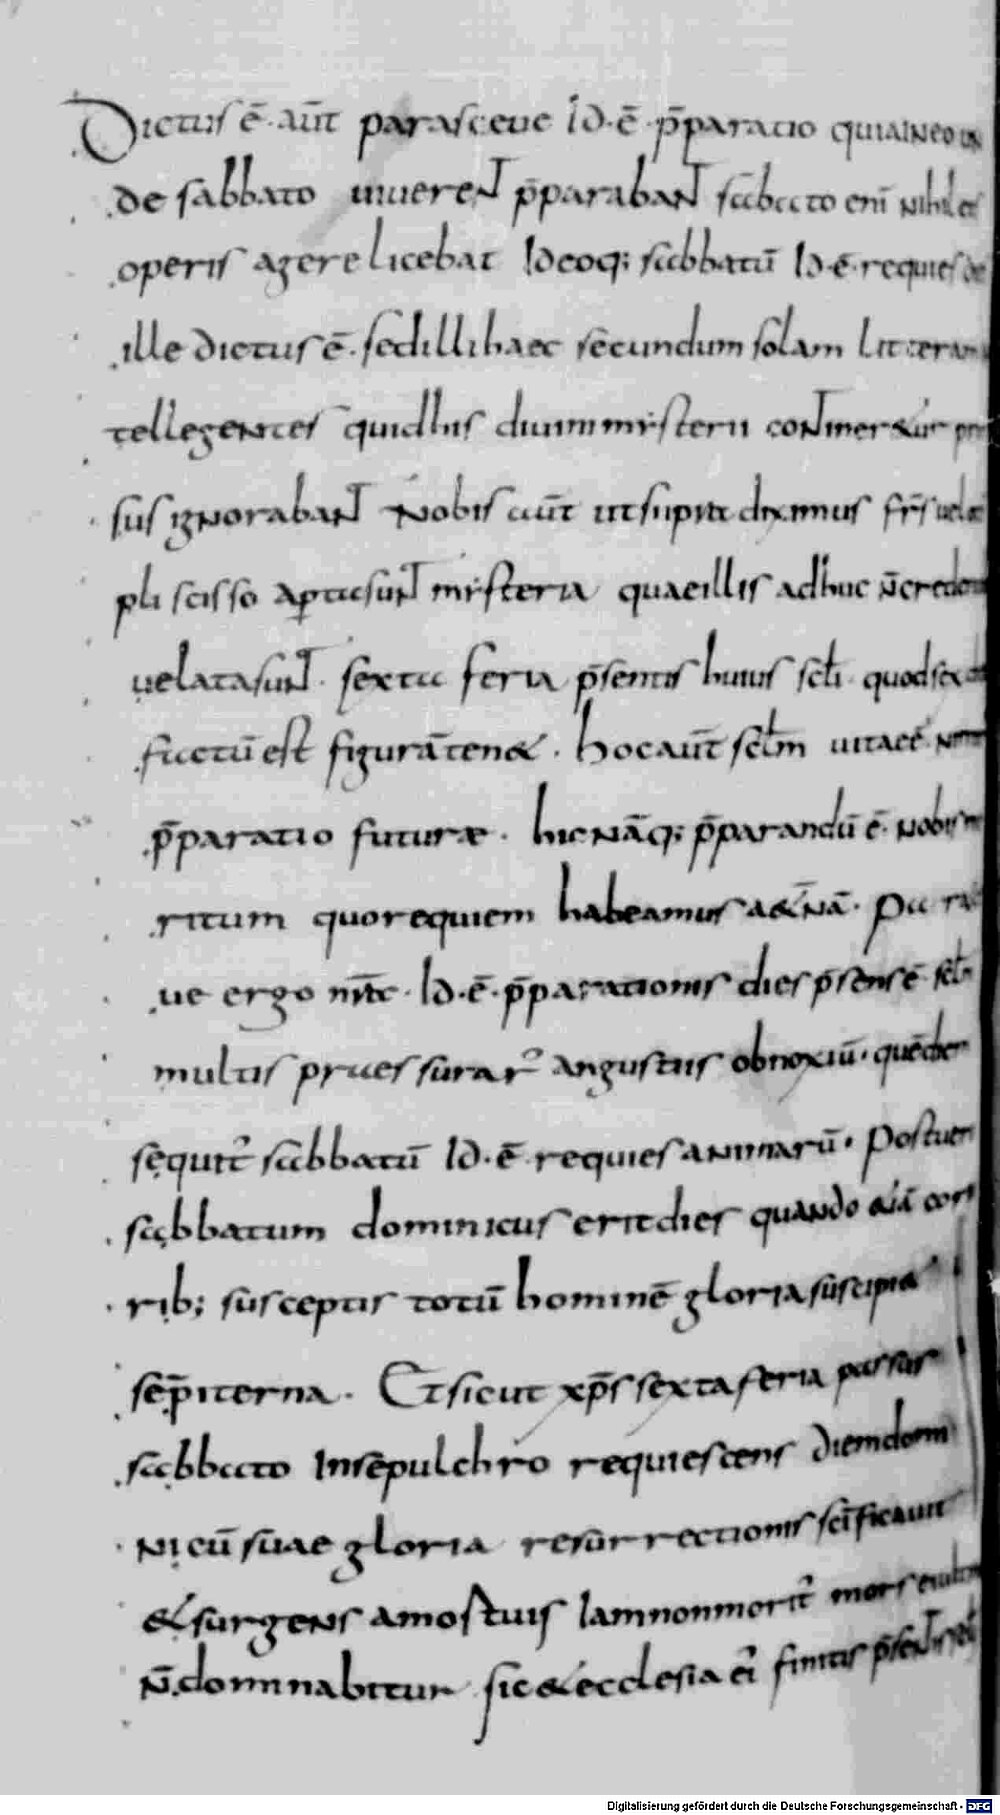 Dictus ē· aūt parasceve Id·ē· p̄paratio quia in eo un
de sabbato viverent p̄parabant sabbato enī nihil eis
operis agere licebat Ideoq; sabbatū Id·ē· requies de
ille dictus ē· sed illi haec secundum solam litteram
tellegentes quid his divini misterii contineretur
sus ignorabant Nobis aūt ut supra diximus fr̄s
pli scisso aperta sunt misteria quae illis adhuc n̄
velata sunt· sexta feria p̄sentis huius sc̄li· quod
factū est figurā tenet· hoc aūt sc̄lm vita ē
p̄paratio futuræ· hic nāq; p̄parandū ē· nobis
ritum quo requiem habeamus aet̄nā· Pa
ve ergo Id·ē· p̄parationis dies p̄sens ē sc̄lm
multis praessurar̄ angustiis obnoxiū·
sequit̄ sabbatū Id·ē· requies animarū·
sabbatum dominicus erit dies quando
rib; susceptis totū hominē gloria suscipiat
sep̄iterna· Et sicut xp̄s sexta feria passus
sabbato In sepulchro requiescens diem dom
nicū suae gloria resurrectionis sc̄ificavit
& surgens a mostuis Iam non morit̄ mors
n̄ dominabitur sic & ecclesia ei finitis p̄sentis
Digitalisierung gefördert durch die Deutsche Forschungsgemeinschaft - DFG